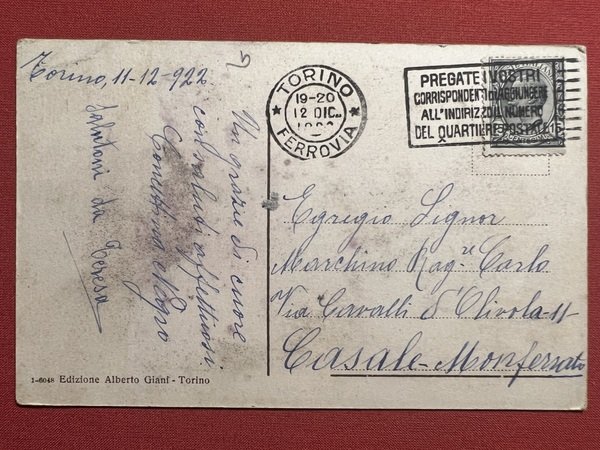 Torino, 11-12-922
TORINO
19-20
12 DIC.
FERROVIA
PREGATE I VOSTRI
CORRISPONDENTI DI AGGIUNGERE
ALL'INDIRIZZO IL NUMERO
DEL QUARTIERE POSTALE
Un grazie di cuore
con saluti affettuosi.
Salutoni da Teresa
Egregio Signor
Marchino Rag.re Carlo
Via Cavalli d'Olivola-11
Casale-Monferrato
1-6048 Edizione Alberto Giani - Torino